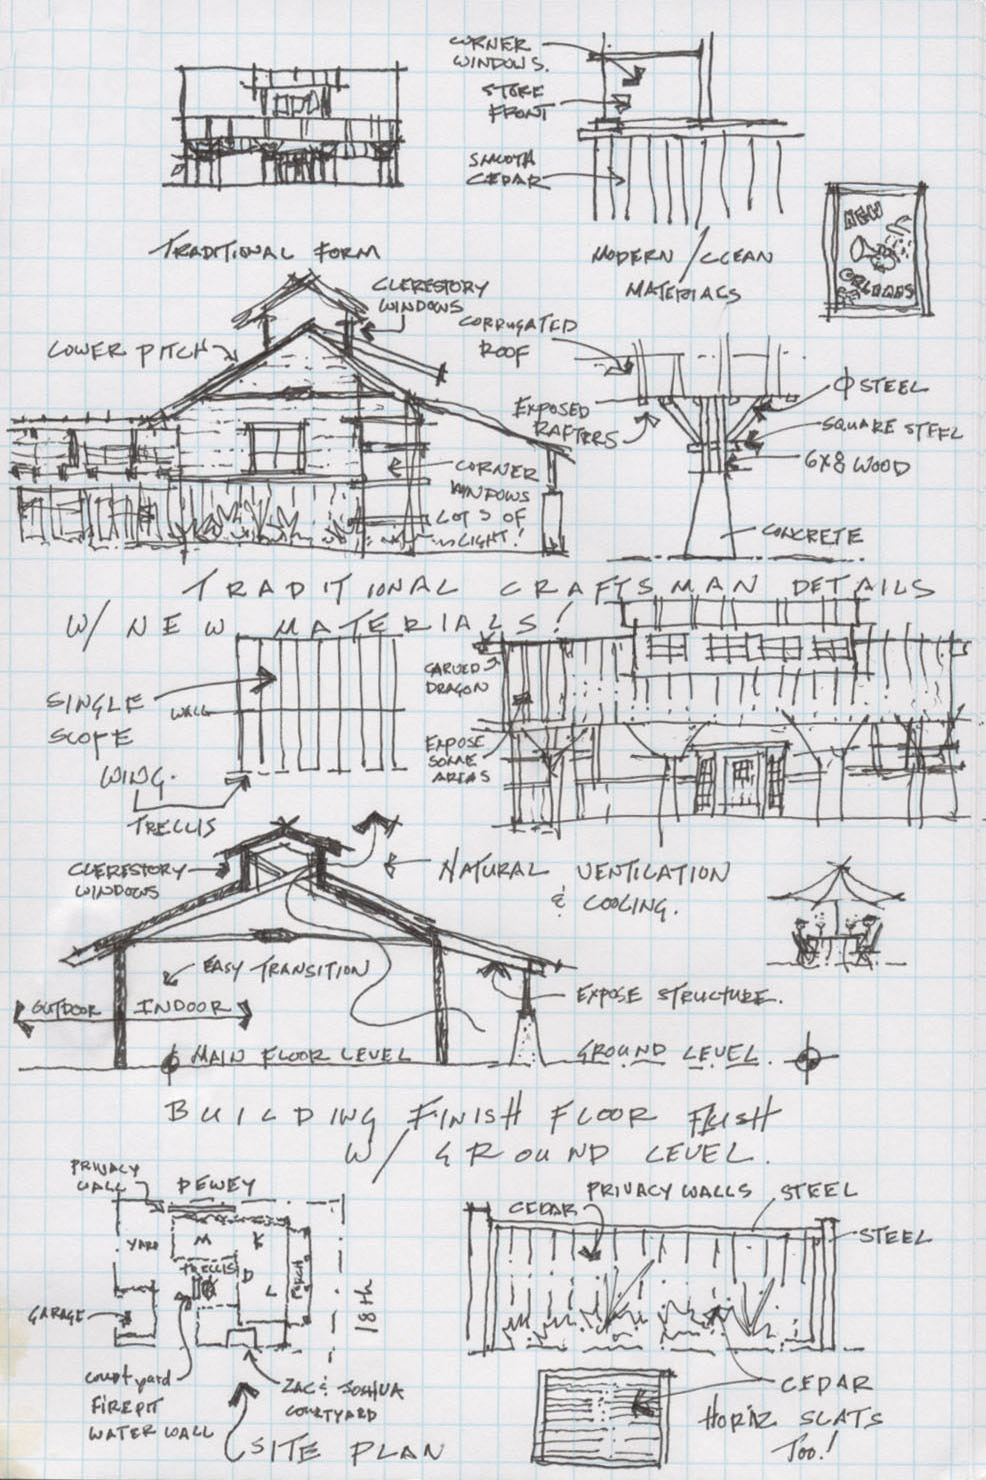 CORNER
WINDOWS.
STORE
FRONT
SMOOTH
CEDAR
MODERN/CLEAN
MATERIALS
NEW
ORLEANS
TRADITIONAL FORM
CLERESTORY
WINDOWS
LOWER PITCH
CORRUGATED
ROOF
EXPOSED
RAFTERS
Φ STEEL
SQUARE STEEL
6X8 WOOD
CONCRETE
CORNER
WINDOWS
LOTS OF
LIGHT!
TRADITIONAL CRAFTSMAN DETAILS
W/ NEW MATERIALS!
SINGLE
SLOPE
WING.
WALL
TRELLIS
CARVED
DRAGON
EXPOSE
SOME
AREAS
CLERESTORY
WINDOWS
NATURAL VENTILATION
& COOLING.
EASY TRANSITION
OUTDOOR INDOOR
EXPOSE STRUCTURE.
MAIN FLOOR LEVEL
GROUND LEVEL.
BUILDING FINISH FLOOR FLUSH
W/ GROUND LEVEL.
PRIVACY
WALL
DEWEY
YARD
M
K
TRELLIS
D
L
PORCH
18th
GARAGE
courtyard
FIREPIT
WATER WALL
ZAC & JOSHUA
COURTYARD
SITE PLAN
PRIVACY WALLS
CEDAR
STEEL
STEEL
CEDAR
HORIZ SLATS
TOO!